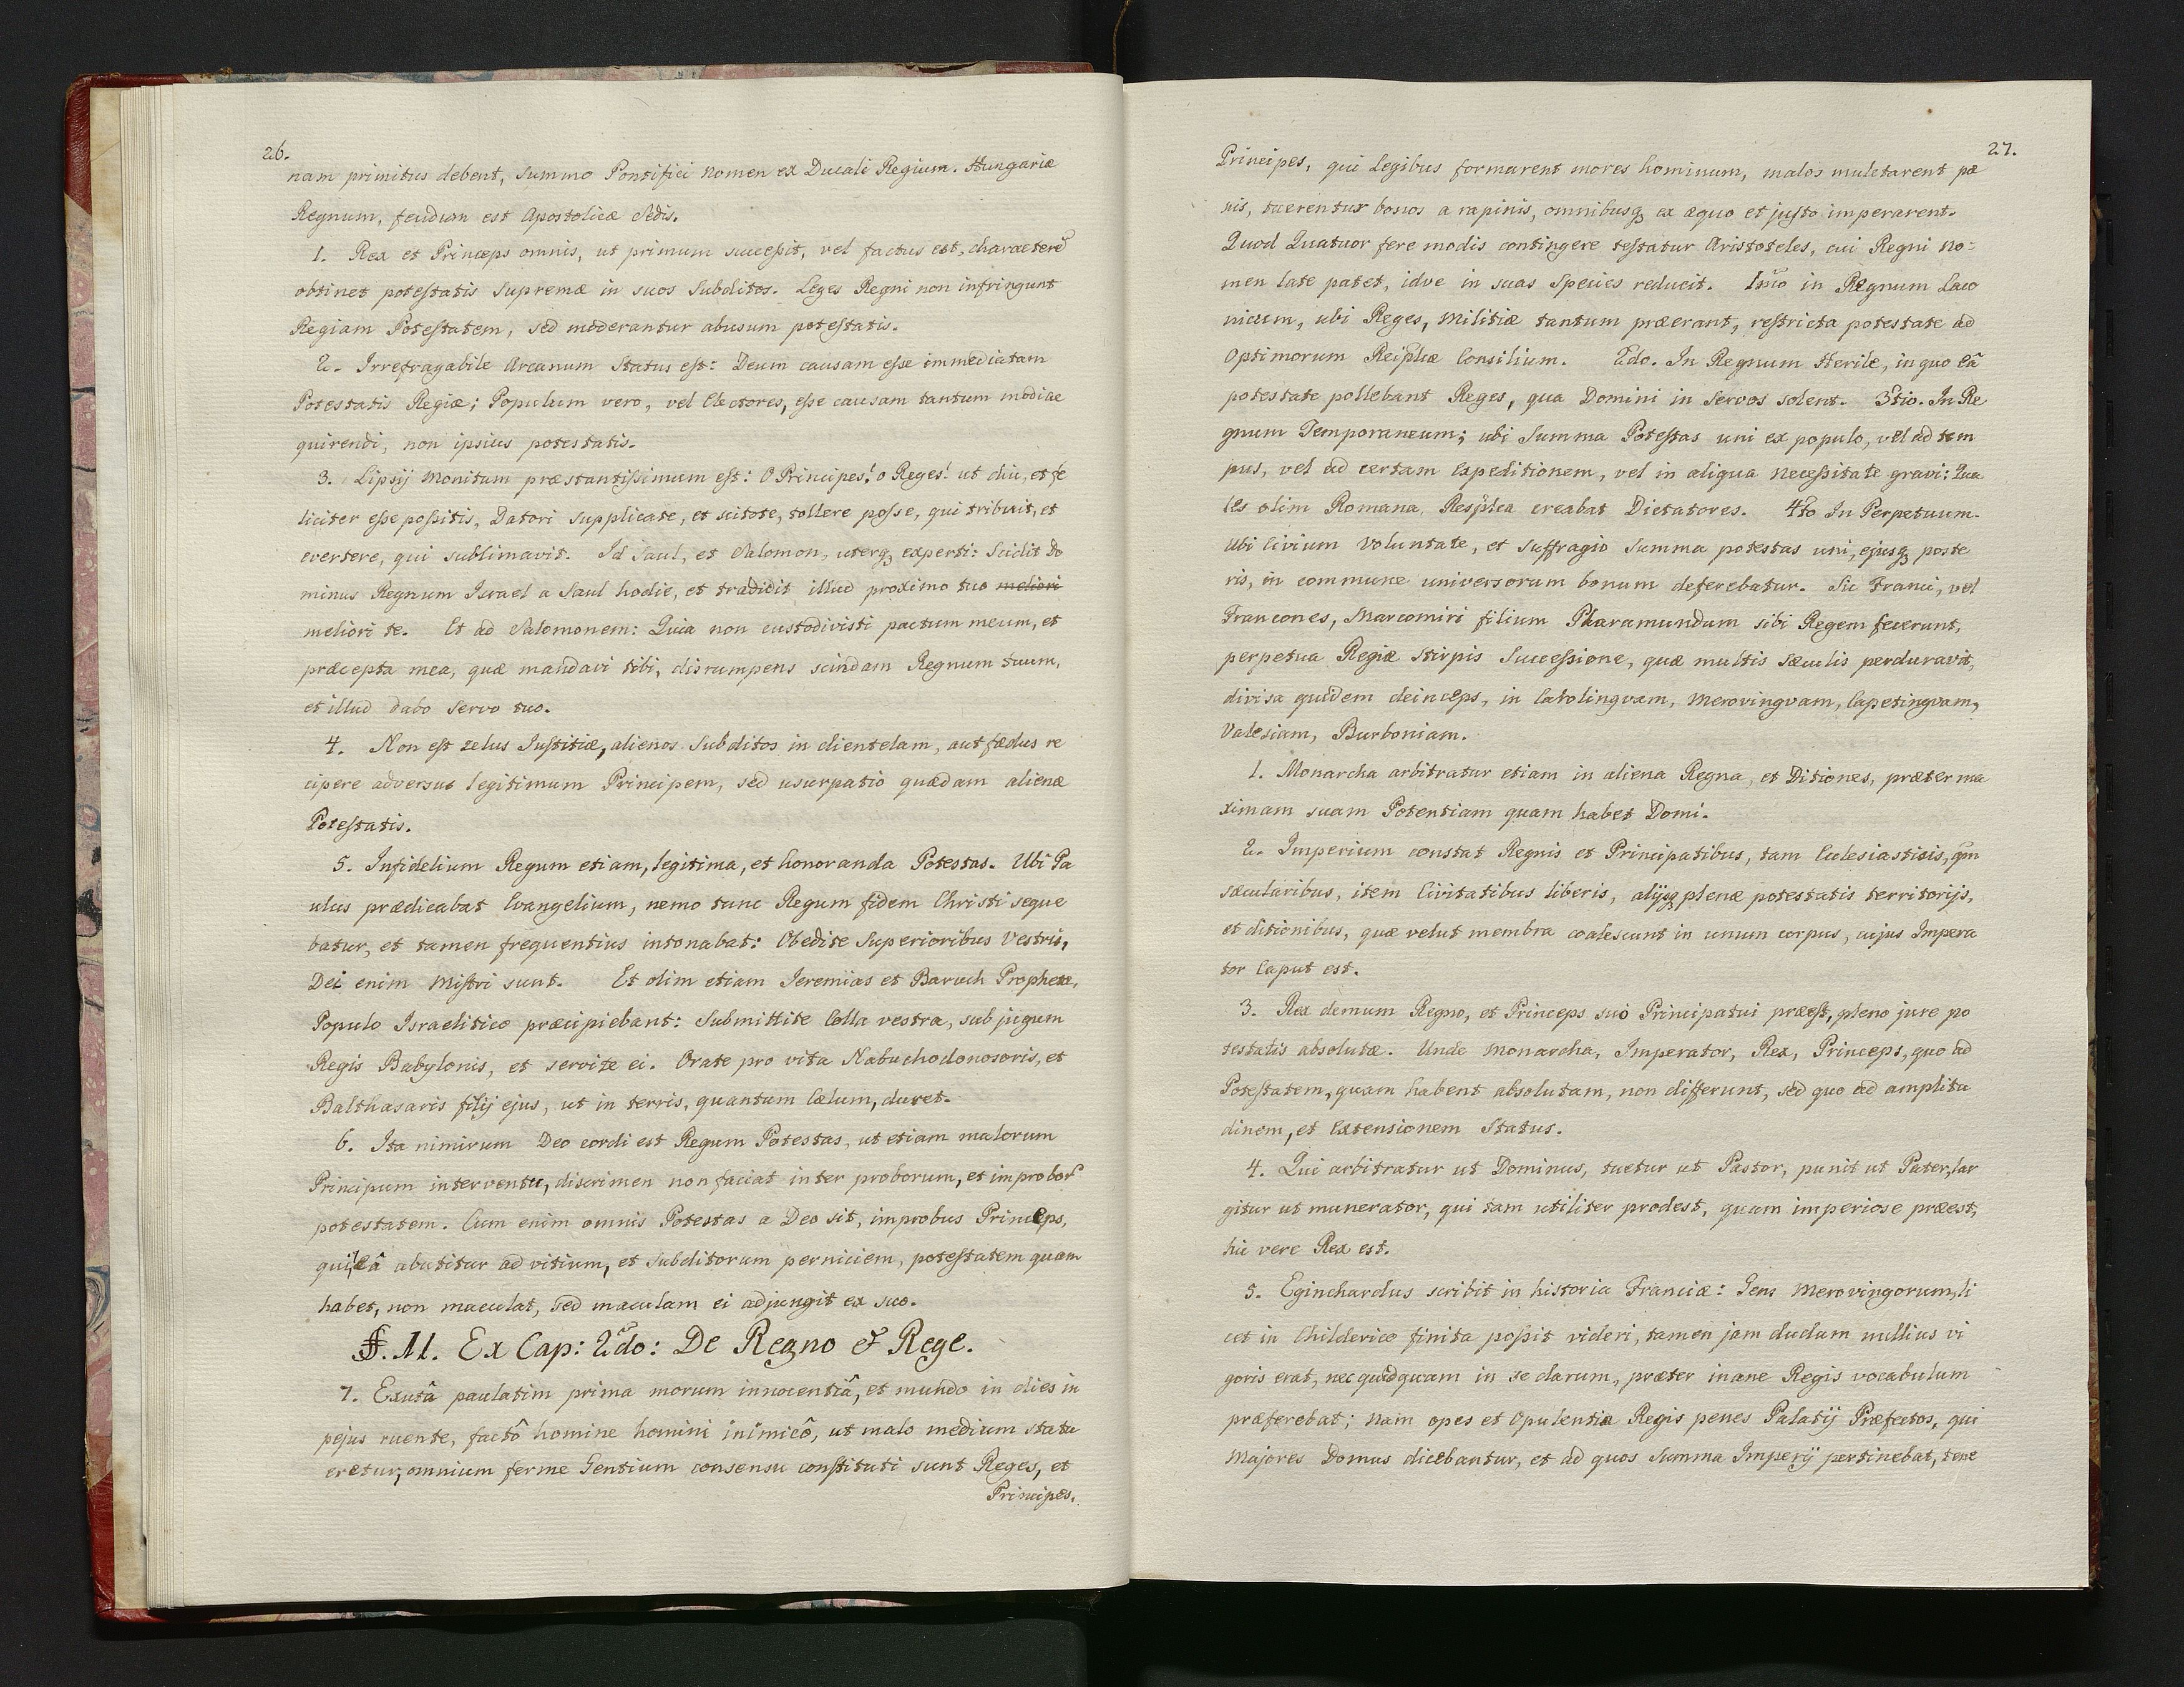 26.
nam primitus debent, Summo Pontifici nomen ex Ducali Regium. Hungariæ
Regnum, feudum est Apostolicæ Sedis.
1. Rex et Princeps omnis, ut primum succeßit, vel factus est, characterē
obtinet poteſtatis Supremæ in suos Subditos. Leges Regni non infringunt
Regiam Poteſtatem, sed moderantur abusum poteſtatis.
2. Irrefragabile Arcanum Status eſt: Deum causam eſse immediatam
Potestatis Regiæ; Populum vero, vel Electores, eſse causam tantum modi ac
quirendi, non ipsius potestatis.
3. Lipsij Monitum præstantißimum eſt: O Principes! o Reges! ut diu, et fe
liciter eſse poßitis, Datori supplicate, et scitote, tollere poſse, qui tribuit, et
evertere, qui sublimavit. Id Saul, et Salomon, uterq experti: Scidit Do
minus Regnum Israel a Saul hodie, et tradidit illud proximo tuo meliori
meliori te. Et ad Salomonem: Quia non custodivisti pactum meum, et
præcepta mea, quæ mandavi tibi, disrumpens scindam Regnum tuum,
et illud dabo Servo tuo.
4. Non eſt zelus Juſtitiæ, alienos Subditos in clientelam, aut fœdus re
cipere adversus legitimum Principem, sed usurpatio quædam alienæ
Poteſtatis.
5. Infidelium Regum etiam, legitima, et honoranda Potestas. Ubi Pa
ulus prædicabat Evangelium, nemo tunc Regum fidem Christi seque
batur, et tamen frequentius intonabat: Obedite Superioribus Vestris,
Dei enim Miſtri sunt. Et olim etiam Jeremias et Baruch Prophetæ,
Populo Israelitico præcipiebant: Submittite Colla vestra, sub jugum
Regis Babylonis, et servite ei. Orate pro vita Nabuchodonosoris, et
Balthasaris filij ejus, ut in terris, quantum Cælum, duret.
6. Ita nimirum Deo cordi est Regum Potestas, ut etiam malorum
Principum interventu, discrimen non faciat inter proborum, et improbor
potestatem. Cum enim omnis Potestas a Deo sit, improbus Princeps,
qui eâ abutitur ad vitium, et Subditorum perniciem, poteſtatem quam
habet, non maculat, sed maculam ei adjungit ex suo.
§. 11. Ex Cap: 2do: De Regno & Rege.
7. Exutâ paulatim prima morum innocentiâ, et mundo in dies in
pejus ruente, factô homine homini inimicô, ut malo medium statu
eretur, omnium ferme Gentium consensu conſtituti sunt Reges, et
Principes,
27.
Principes, qui Legibus formarent mores hominum, malos mulctarent pæ
nis, tuerentur bonos a rapinis, omnibusq ex æquo et juſto imperarent.
Quod Quatuor fere modis contingere teſtatur Aristoteles, cui Regni no=
men late patet, idve in suas Species reducit. 1mo in Regnum Laco
nicum, ubi Reges, Militiæ tantum præerant, reſtricta potestate ad
Optimorum Reiplcæ Consilium. 2do. In Regnum Herile, in quo eâ
potestate pollebant Reges, qua Domini in Servos solent. 3tio. In Re
gnum Temporaneum; ubi Summa Poteſtas uni ex populo, vel ad tem
pus, vel ad certam Expeditionem, vel in aliqua Neceßitate gravi: Qua
les olim Romana Resplca creabat Dictatores. 4to In Perpetuum.
Ubi Civium voluntate, et Suffragio Summa potestas uni, ejusq poste
ris, in commune universorum bonum deferebatur. Sic Franci, vel
Francones, Marcomiri filium Pharamundum sibi Regem fecerunt,
perpetua Regiæ Stirpis Succeßione, quæ multis Sæculis perduravit,
divisa quidem deinceps, in Carolingvam, Merovingvam, Capetingvam,
Valesiam, Burboniam.
1. Monarcha arbitratur etiam in aliena Regna, et Ditiones, præter ma
ximam suam Potentiam quam habet Domi.
2. Imperium constat Regnis et Principatibus, tam Ecclesiasticis, qm
sæcularibus, item Civitatibus liberis, alijsq plenæ potestatis territorijs,
et ditionibus, quæ velut membra coalescunt in unum corpus, cujus Impera
tor Caput est.
3. Rex demum Regno, et Princeps suo Principatui præeſt, pleno jure po
testatis absolutæ. Unde Monarcha, Imperator, Rex, Princeps, quo ad
Poteſtatem, quam habent absolutam, non differunt, sed quo ad amplitu
dinem, et Extensionem Status.
4. Qui arbitratur ut Dominus, tuetur ut Pastor, punit ut Pater, lar
gitur ut munerator, qui tam utiliter prodest, quam imperiose præest,
hic vere Rex est.
5. Eginchardus scribit in historia Franciæ: Gens Merovingorum, li
cet in Childerico finita poßit videri, tamen jam dudum nullius vi
goris erat, nec quidquam in se clarum, præter inane Regis vocabulum
præferebat; Nam opes et Opulentia Regis penes Palatij Præfectos, qui
Majores Domus dicebantur, et ad quos Summa Imperij pertinebat, tene